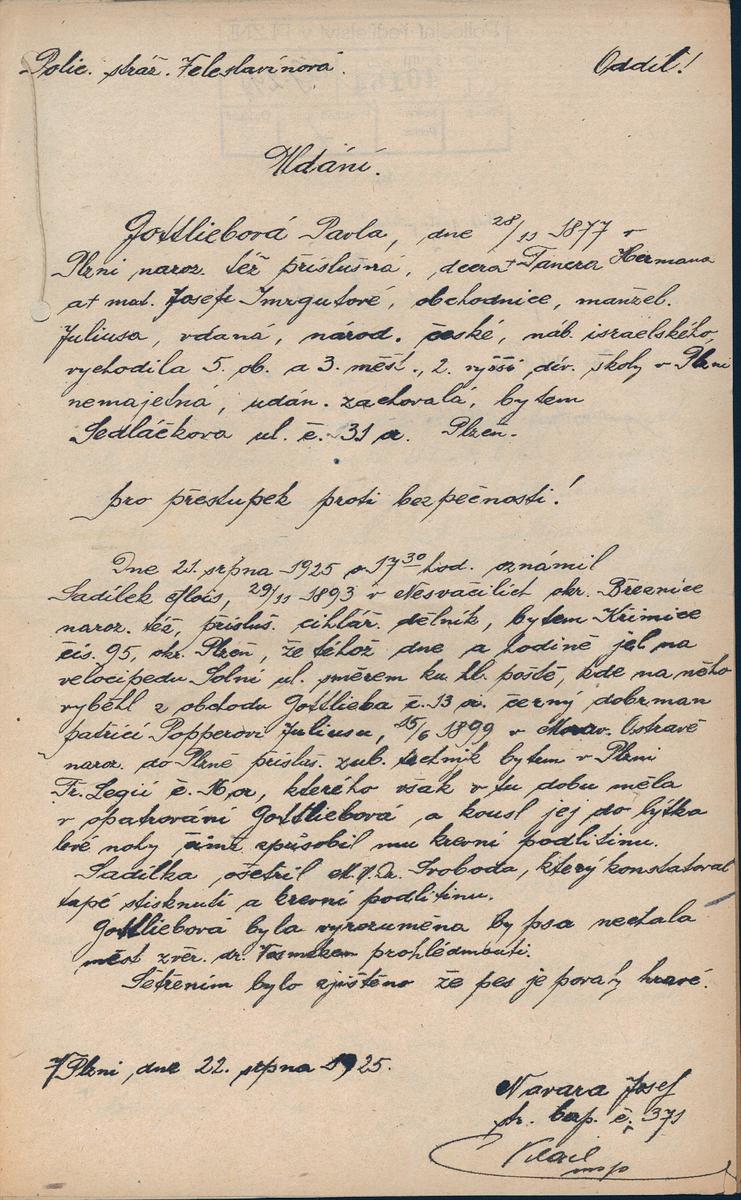 Polic. stráž. Veleslavínova. Oddíl!
Udání.
Gottliebová Pavla, dne 28/11 1877 v
Plzni naroz. též příslušná, dcera + Tancra Hermana
a + mat. Josefy Imrgutové, obchodnice, manžel.
Juliusa, vdaná, národ. české, náb. israelského,
vychodila 5. ob. a 3. měšť., 2. vyšší dív. školy v Plzni
nemajetná, udán. zachovalá, bytem
Sedláčkova ul. č. 31 a. Plzeň.
pro přestupek proti bezpečnosti!
Dne 21. srpna 1925 o 17 30 hod. oznámil
Sadílek Alois, 29/11 1893 v Nesvačilích okr. Březnice
naroz. též, přísluš. cihlář. dělník, bytem Křimice
čís. 95, okr. Plzeň, že téhož dne a hodině jel na
velocipedu Solní ul. směrem ku hl. poště, kde na něho
vyběhl z obchodu Gottlieba č. 13 or. černý dobrman
patřící Popperovi Juliusu, 15/6 1899 v Morav. Ostravě
naroz. do Plzně přísluš. zub. technik bytem v Plzni
Tř. Legií č. 16 or, kterého však v tu dobu měla
v opatrování Gottliebová a kousl jej do lýtka
levé nohy čímž způsobil mu krevní podlitinu.
Sadílka ošetřil M.U.Dr. Svoboda, který konstatoval
tupé stisknutí a krevní podlitinu.
Gottliebová byla vyrozuměna by psa nechala
měst. zvěr. dr. prohlédnouti.
Šetřením bylo zjištěno že pes je povahy hravé.
V Plzni, dne 22. srpna 1925.
Navara Josef
str. č. 371